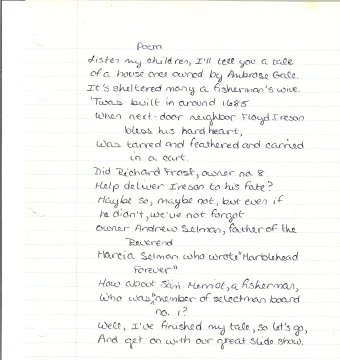 Poem
Listen my children, I'll tell you a tale
of a house once owned by Ambrose Gale.
It's sheltered many a fisherman's wive.
'Twas built in around 1685
When next-door neighbor Floyd Ireson
bless his hard heart,
Was tarred and feathered and carried
in a cart.
Did Richard Frost, owner no. 8
Help deliver Ireson to his fate?
Maybe so, maybe not, but even if
he didn't, we've not forgot
Owner Andrew Selman, father of the
Reverend
Marcia Selman who wrote "Marblehead
Forever"
How about Sam. Merriot, a fisherman,
Who was, "member of selectman board
no. 1?
Well, I've finished my tale, so let's go,
And get on with our great slide show.